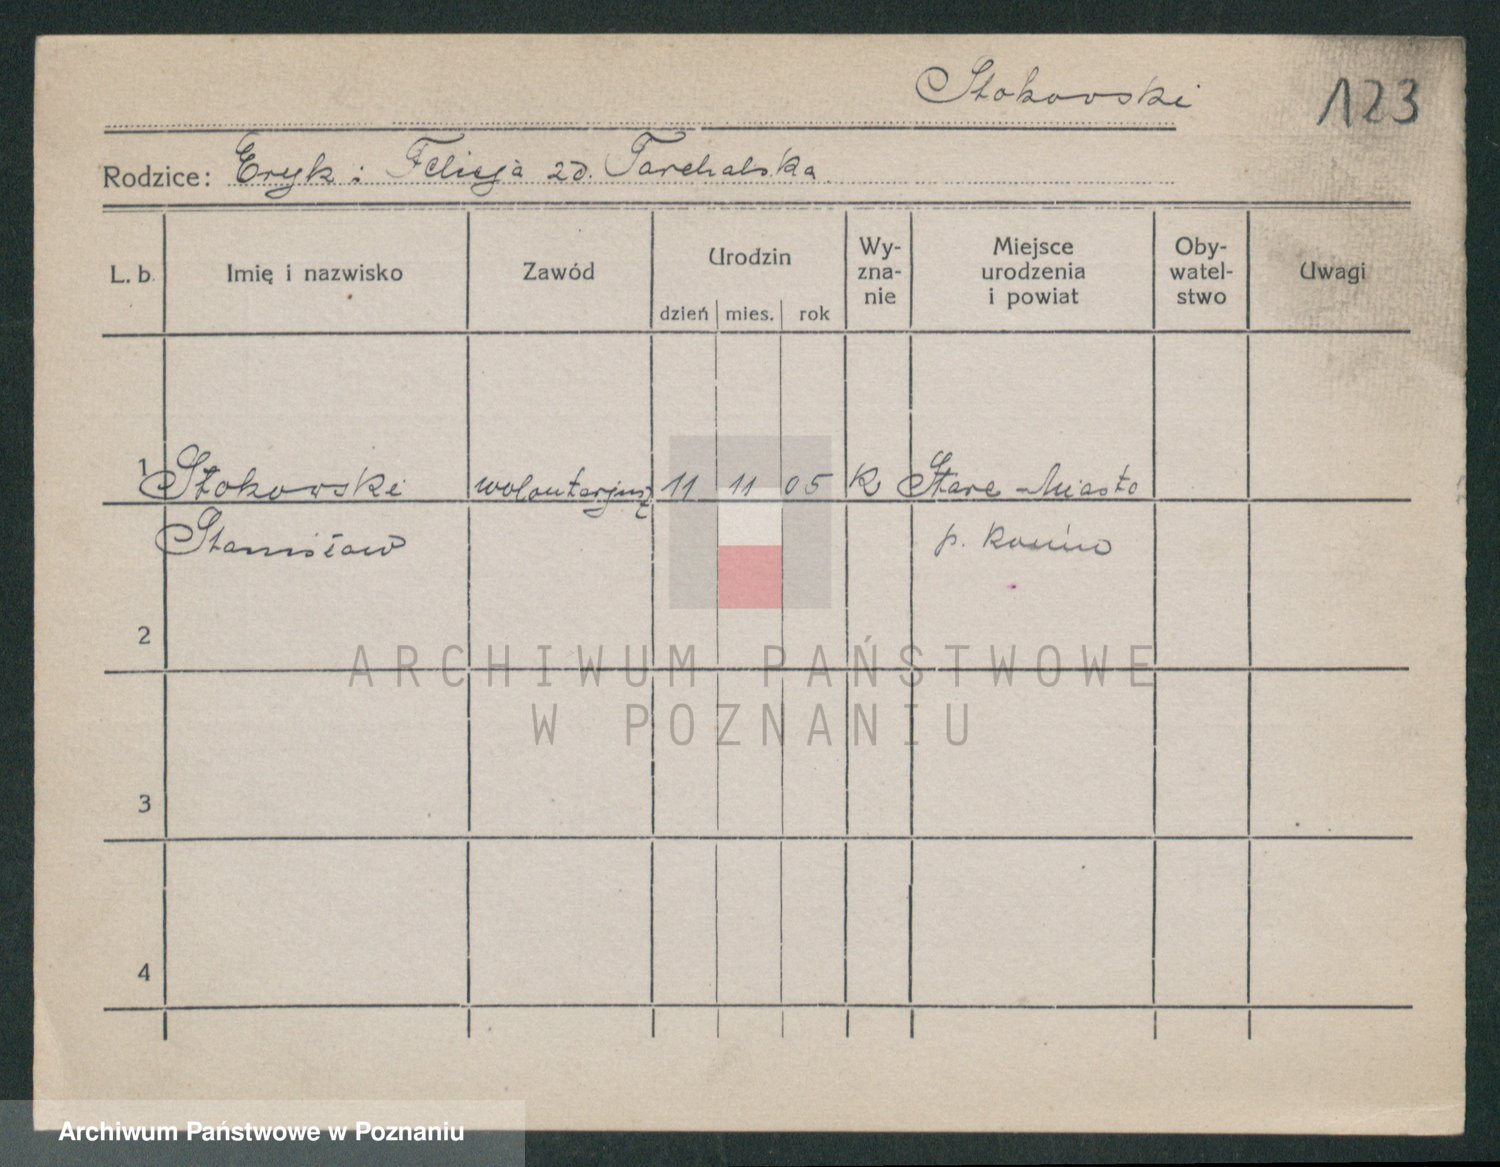 Stokowski
123
Rodzice: Eryk i Felicja zd. Tarchalska
L. b. Imię i nazwisko Zawód Urodzin dzień mies. rok Wy-zna-nie Miejsce urodzenia i powiat Oby-watel-stwo Uwagi
1 Stokowski wolontarjusz 11 11 05 K Stare Miasto
Stanisław p. Konin
2
ARCHIWUM PAŃSTWOWE
W POZNANIU
3
4
Archiwum Państwowe w Poznaniu